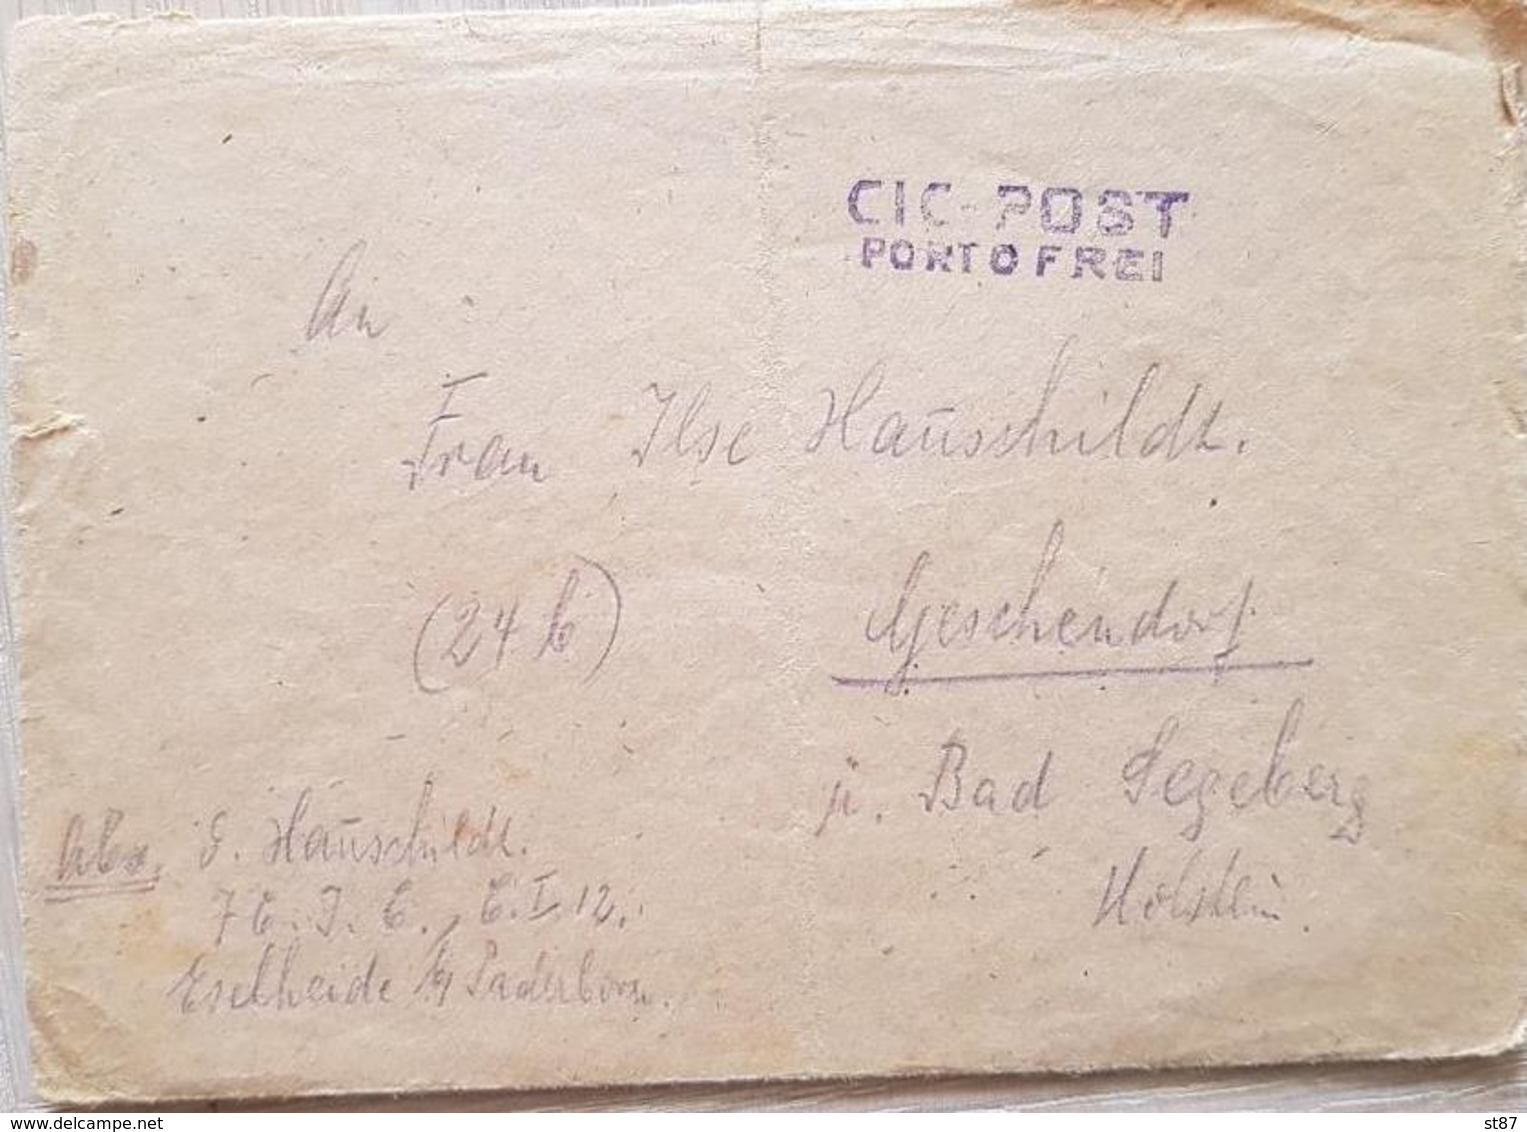 CIC-POST
PORTOFREI
An
Frau Ilse Hauschildt.
(24 b) Geschendorf
ü. Bad Segeberg
Holstein.
Abs. G. Hauschildt.
7 C. I. C., C.I 12.
Eselheide b/ Paderborn.
www.delcampe.net
st87